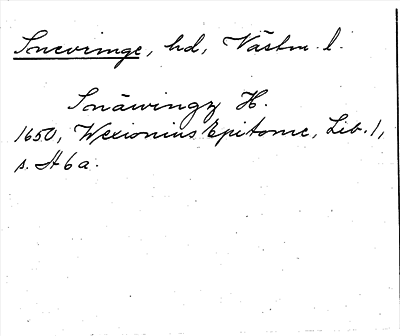 Snevringe, hd, Västm. l.
Snäwingz H.
1650, Wexionius Epitome, Lib. 1,
s. A 6 a.